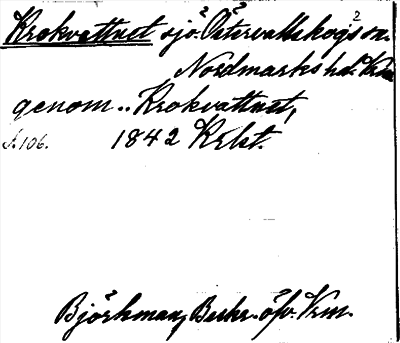 Krokvattnet sjö Östervallskogs sn.
Nordmarks hd. Vrm
genom .. Krokvattnet,
s. 106. 1842 Krbt.
Björkman, Beskr. öfv. Vrm.